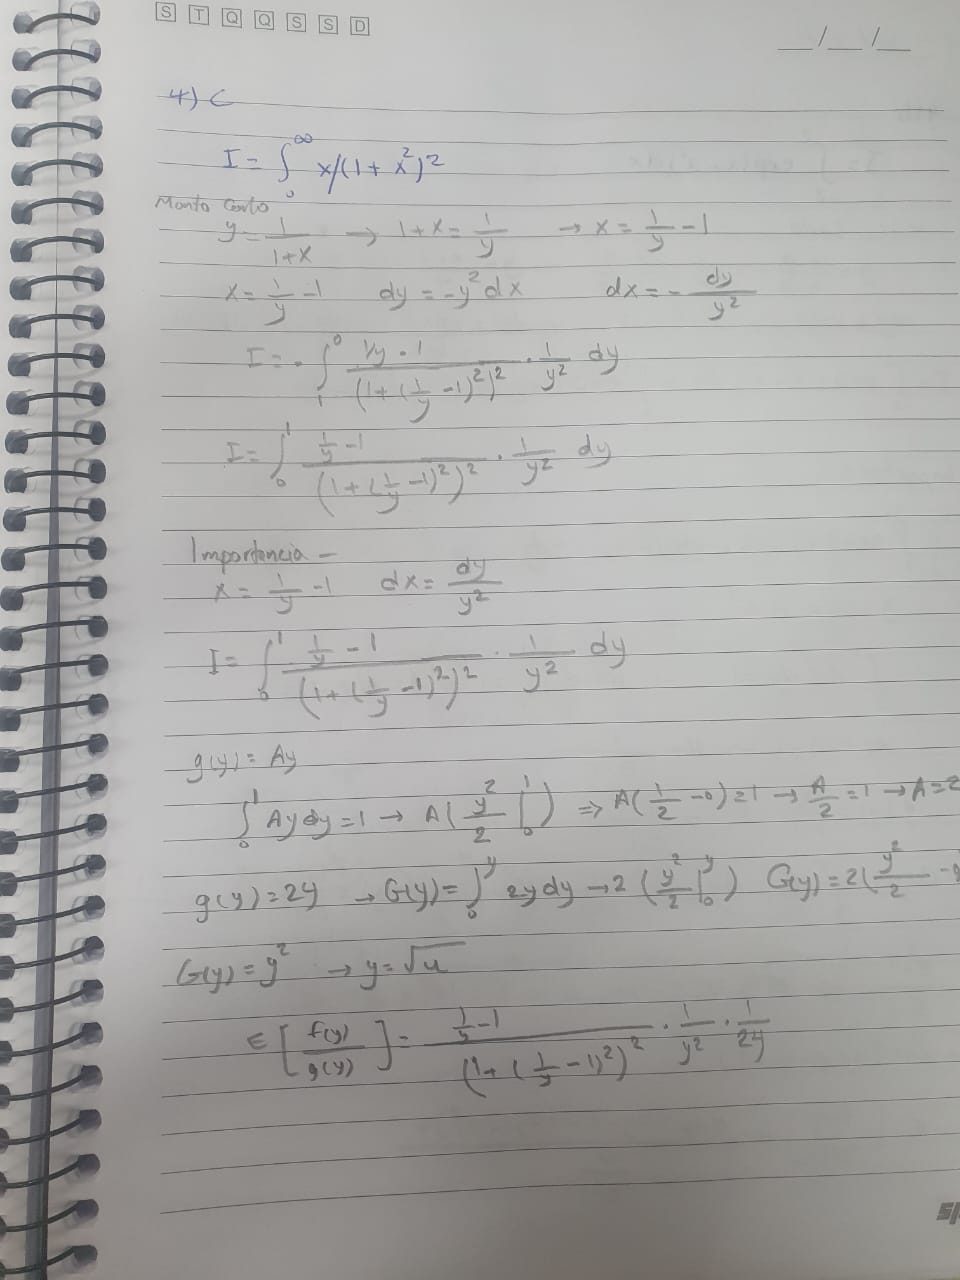 S T Q Q S S D
__/__/__
4) C
I = ∫₀^∞ x/(1+x²)²
Monto Carlo
y = 1/(1+x) → 1+x = 1/y → x = 1/y - 1
x = 1/y - 1 dy = -y² dx dx = - dy/y²
I = - ∫₁⁰ (1/y - 1)/(1+(1/y - 1)²)² · 1/y² dy
I = ∫₀¹ (1/y - 1)/(1+(1/y - 1)²)² · 1/y² dy
Importancia -
x = 1/y - 1 dx = dy/y²
I = ∫₀¹ (1/y - 1)/(1+(1/y - 1)²)² · 1/y² dy
g(y) = Ay
∫₀¹ Ay dy = 1 → A(y²/2 |₀¹) ⇒ A(1/2 - 0) = 1 → A/2 = 1 → A = 2
g(y) = 2y → G(y) = ∫₀^y 2y dy → 2(y²/2 |₀^y) G(y) = 2(y²/2 -
G(y) = y² → y = √u
E[f(y)/g(y)] = (1/y - 1)/(1+(1/y - 1)²)² · 1/y² · 1/2y